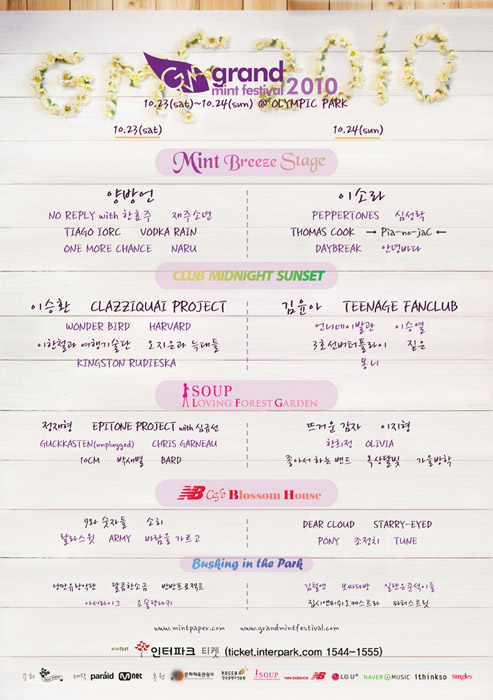 GMF2010
grand
mint festival 2010
10.23(sat)~10.24(sun) @ OLYMPIC PARK
10.23(sat)
10.24(sun)
Mint Breeze Stage
양방언
NO REPLY with 한효주 재주소년
TIAGO IORC VODKA RAIN
ONE MORE CHANCE NARU
이소라
PEPPERTONES 심성락
THOMAS COOK → Pia-no-jaC ←
DAYBREAK 안녕바다
CLUB MIDNIGHT SUNSET
이승환 CLAZZIQUAI PROJECT
WONDER BIRD HARVARD
이한철과 여행기술단 오지은과 늑대들
KINGSTON RUDIESKA
김윤아 TEENAGE FANCLUB
언니네이발관 이승열
3호선버터플라이 짙은
몽니
SOUP
LOVING FOREST GARDEN
정재형 EPITONE PROJECT with 심규선
GUCKKASTEN(unplugged) CHRIS GARNEAU
10CM 박새별 BARD
뜨거운 감자 이지형
한희정 OLIVIA
좋아서 하는 밴드 옥상달빛 가을방학
NB Cafe Blossom House
9와 숫자들 소히
랄라스윗 ARMY 바람을 가르고
DEAR CLOUD STARRY-EYED
PONY 조정치 TUNE
Busking in the Park
낭만유랑악단 달콤한소금
www.mintpaper.com www.grandmintfestival.com
인터파크 티켓 (ticket.interpark.com 1544-1555)
주최 제작 paraid Mnet 후원 문화체육관광부 KOCCA SOUP new balance NB LG U+ NAVER MUSIC ithinkso Singles